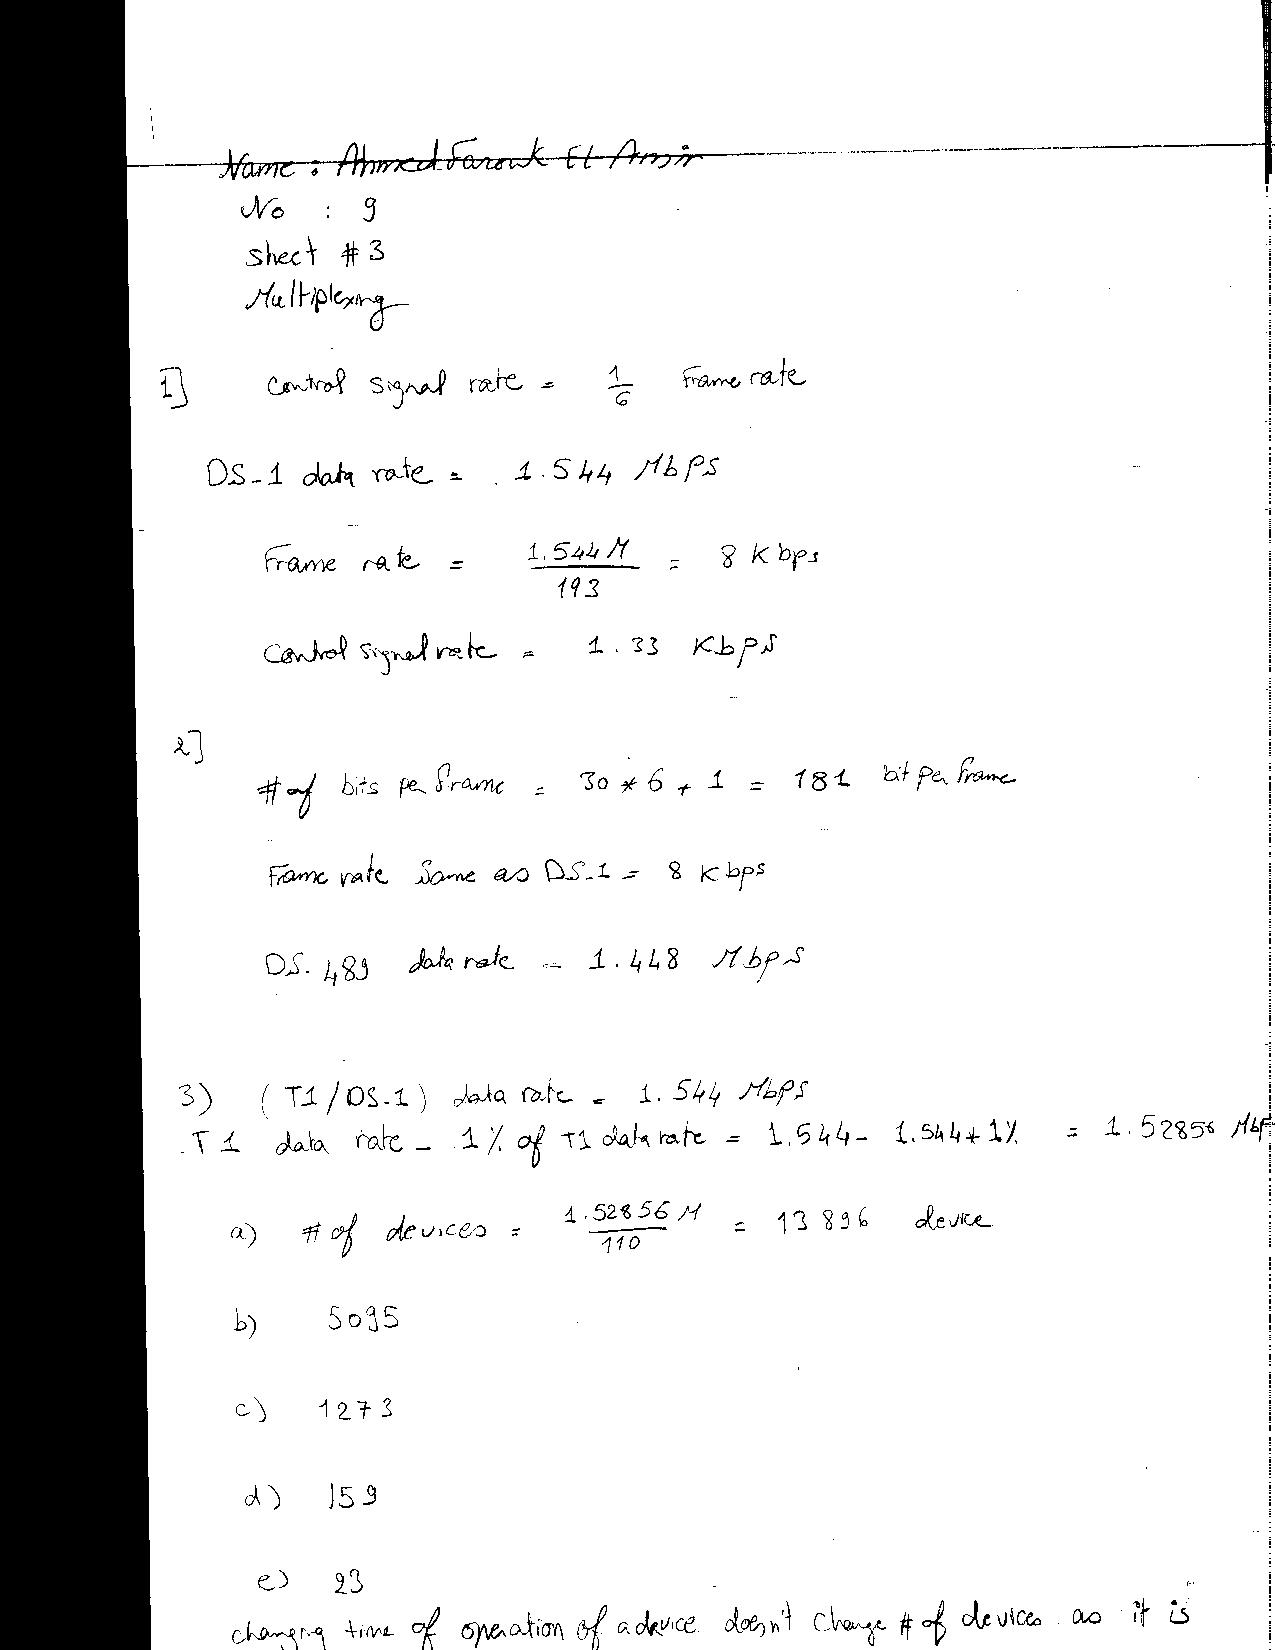 Name : Ahmed Farouk El Amir
No : 9
Sheet # 3
Multiplexing
1] Control signal rate = 1/6 Frame rate
DS-1 data rate = 1.544 Mbps
Frame rate = 1.544 M / 193 = 8 Kbps
Control signal rate = 1.33 Kbps
2]
# of bits per frame = 30 * 6 + 1 = 181 bit per frame
Frame rate Same as DS-1 = 8 Kbps
DS. 489 data rate = 1.448 Mbps
3) (T1/DS-1) data rate = 1.544 Mbps
T1 data rate - 1% of T1 data rate = 1.544 - 1.544 * 1% = 1.52856 Mbp
a) # of devices = 1.52856 M / 110 = 13896 device
b) 5095
c) 1273
d) 159
e) 23
changing time of operation of a device doesn't change # of devices as it is